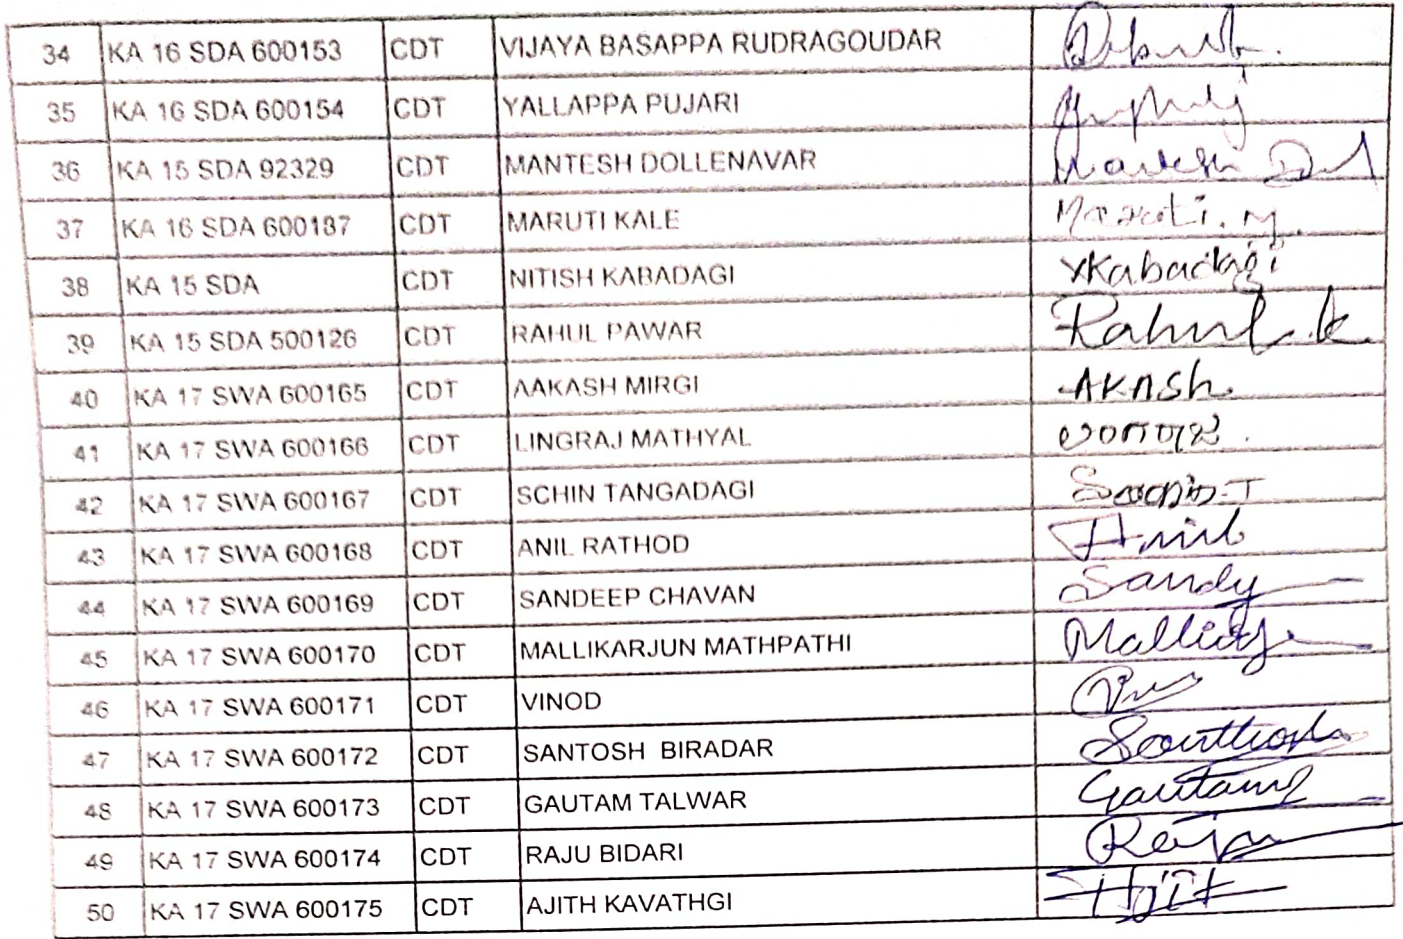 34 KA 16 SDA 600153 CDT VIJAYA BASAPPA RUDRAGOUDAR
35 KA 16 SDA 600154 CDT YALLAPPA PUJARI
36 KA 15 SDA 92329 CDT MANTESH DOLLENAVAR
37 KA 16 SDA 600187 CDT MARUTI KALE
38 KA 15 SDA CDT NITISH KABADAGI
39 KA 15 SDA 500126 CDT RAHUL PAWAR Rahul.k
40 KA 17 SWA 600165 CDT AAKASH MIRGI AKASh
41 KA 17 SWA 600166 CDT LINGRAJ MATHYAL
42 KA 17 SWA 600167 CDT SCHIN TANGADAGI
43 KA 17 SWA 600168 CDT ANIL RATHOD Anil
44 KA 17 SWA 600169 CDT SANDEEP CHAVAN Sandy
45 KA 17 SWA 600170 CDT MALLIKARJUN MATHPATHI
46 KA 17 SWA 600171 CDT VINOD
47 KA 17 SWA 600172 CDT SANTOSH BIRADAR
48 KA 17 SWA 600173 CDT GAUTAM TALWAR Gautam
49 KA 17 SWA 600174 CDT RAJU BIDARI Raju
50 KA 17 SWA 600175 CDT AJITH KAVATHGI Ajit